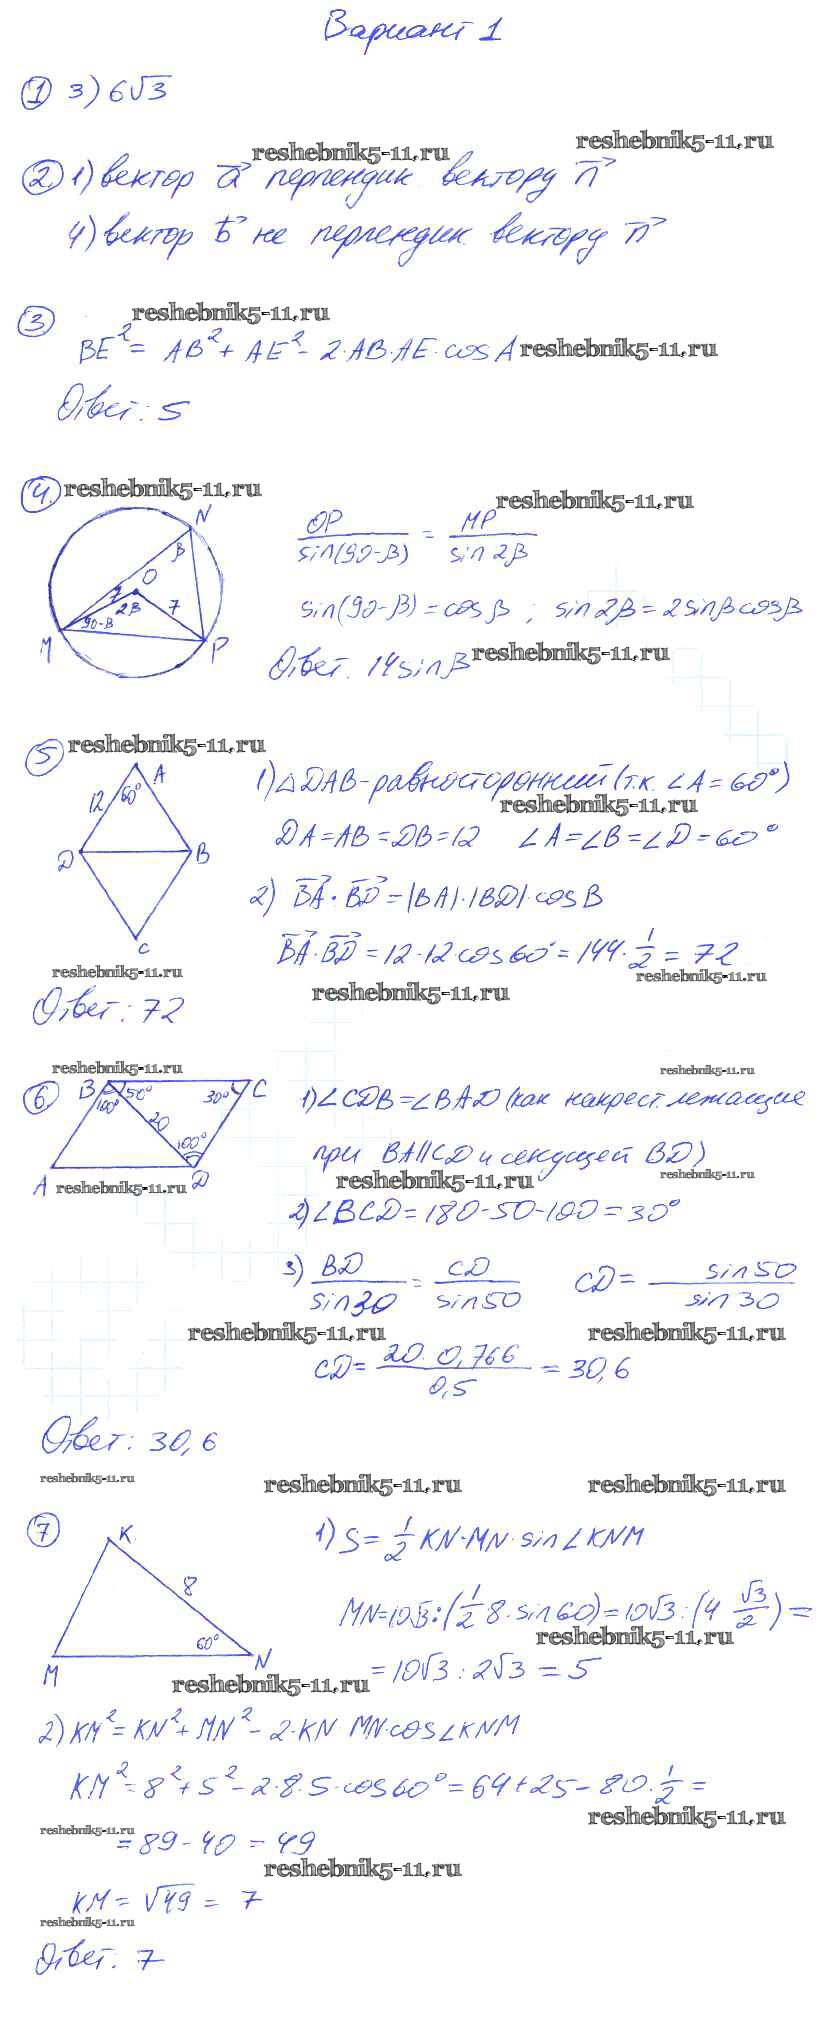 Вариант 1
① 3) 6√3
reshebnik5-11.ru
reshebnik5-11.ru
② 1) вектор a⃗ перпендик. вектору n⃗
4) вектор b⃗ не перпендик. вектору n⃗
③ reshebnik5-11.ru
BE² = AB² + AE² - 2·AB·AE·cosA reshebnik5-11.ru
Ответ: 5
④ reshebnik5-11.ru
reshebnik5-11.ru
N
β
O
7
2β
7
90-β
M
P
OP/sin(90-β) = MP/sin2β
sin(90-β) = cosβ ; sin2β = 2sinβcosβ
Ответ. 14sinβ reshebnik5-11.ru
⑤ reshebnik5-11.ru
A
60°
12
D
B
C
1) △DAB-равносторонний (т.к. ∠A = 60°)
reshebnik5-11.ru
DA = AB = DB = 12 ∠A = ∠B = ∠D = 60°
2) BA⃗ · BD⃗ = |BA|·|BD|·cosB
BA⃗·BD⃗ = 12·12·cos60° = 144·1/2 = 72
reshebnik5-11.ru
reshebnik5-11.ru
reshebnik5-11.ru
Ответ: 72
⑥ reshebnik5-11.ru
reshebnik5-11.ru
B
50°
30°
C
100°
20
100°
A
D
reshebnik5-11.ru
1) ∠CDB = ∠BAD (как накрест. лежащие
при BA||CD и секущей BD)
reshebnik5-11.ru
reshebnik5-11.ru
2) ∠BCD = 180-50-100 = 30°
3) BD/sin30 = CD/sin50 CD = sin50/sin30
reshebnik5-11.ru
reshebnik5-11.ru
CD = 20·0,766/0,5 = 30,6
Ответ: 30,6
reshebnik5-11.ru
reshebnik5-11.ru
reshebnik5-11.ru
⑦
K
8
60°
M
N
1) S = 1/2 KN·MN·sin∠KNM
MN = 10√3 : (1/2 8·sin60) = 10√3 : (4 √3/2) =
reshebnik5-11.ru
= 10√3 : 2√3 = 5
reshebnik5-11.ru
2) KM² = KN² + MN² - 2·KN MN·cos∠KNM
KM² = 8² + 5² - 2·8·5·cos60° = 64 + 25 - 80·1/2 =
reshebnik5-11.ru
reshebnik5-11.ru
= 89 - 40 = 49
reshebnik5-11.ru
KM = √49 = 7
reshebnik5-11.ru
Ответ. 7